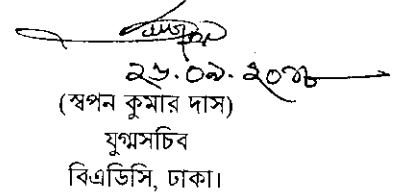 ২৬.০৯.২০১৮
(স্বপন কুমার দাস)
যুগ্মসচিব
বিএডিসি, ঢাকা।